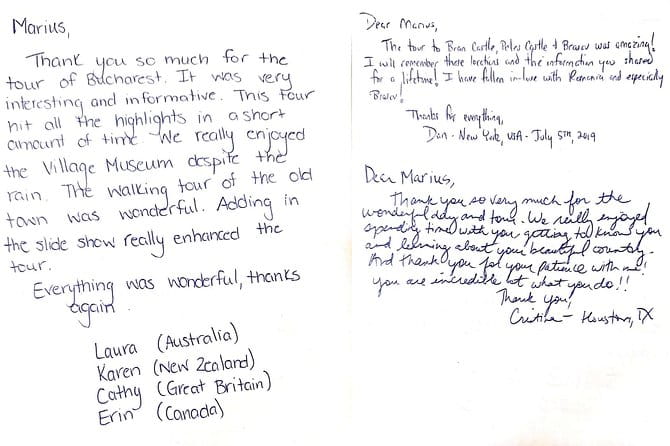 Marius,
Thank you so much for the
tour of Bucharest. It was very
interesting and informative. This tour
hit all the highlights in a short
amount of time. We really enjoyed
the Village Museum despite the
rain. The walking tour of the old
town was wonderful. Adding in
the slide show really enhanced the
tour.
Everything was wonderful, thanks
again.
Laura (Australia)
Karen (New Zealand)
Cathy (Great Britain)
Erin (Canada)
Dear Marius,
The tour to Bran Castle, Peles Castle & Brasov was amazing!
I will remember these locations and the information you shared
for a lifetime! I have fallen in-love with Romania and especially
Brasov!
Thanks for everything,
Dan - New York, USA - July 5th, 2019
Dear Marius,
Thank you so very much for the
wonderful day and tour. We really enjoyed
spending time with you getting to know you
and learning about your beautiful country.
And thank you for your patience with me!
You are incredible at what you do!!
Thank you!
Cristine - Houston, TX